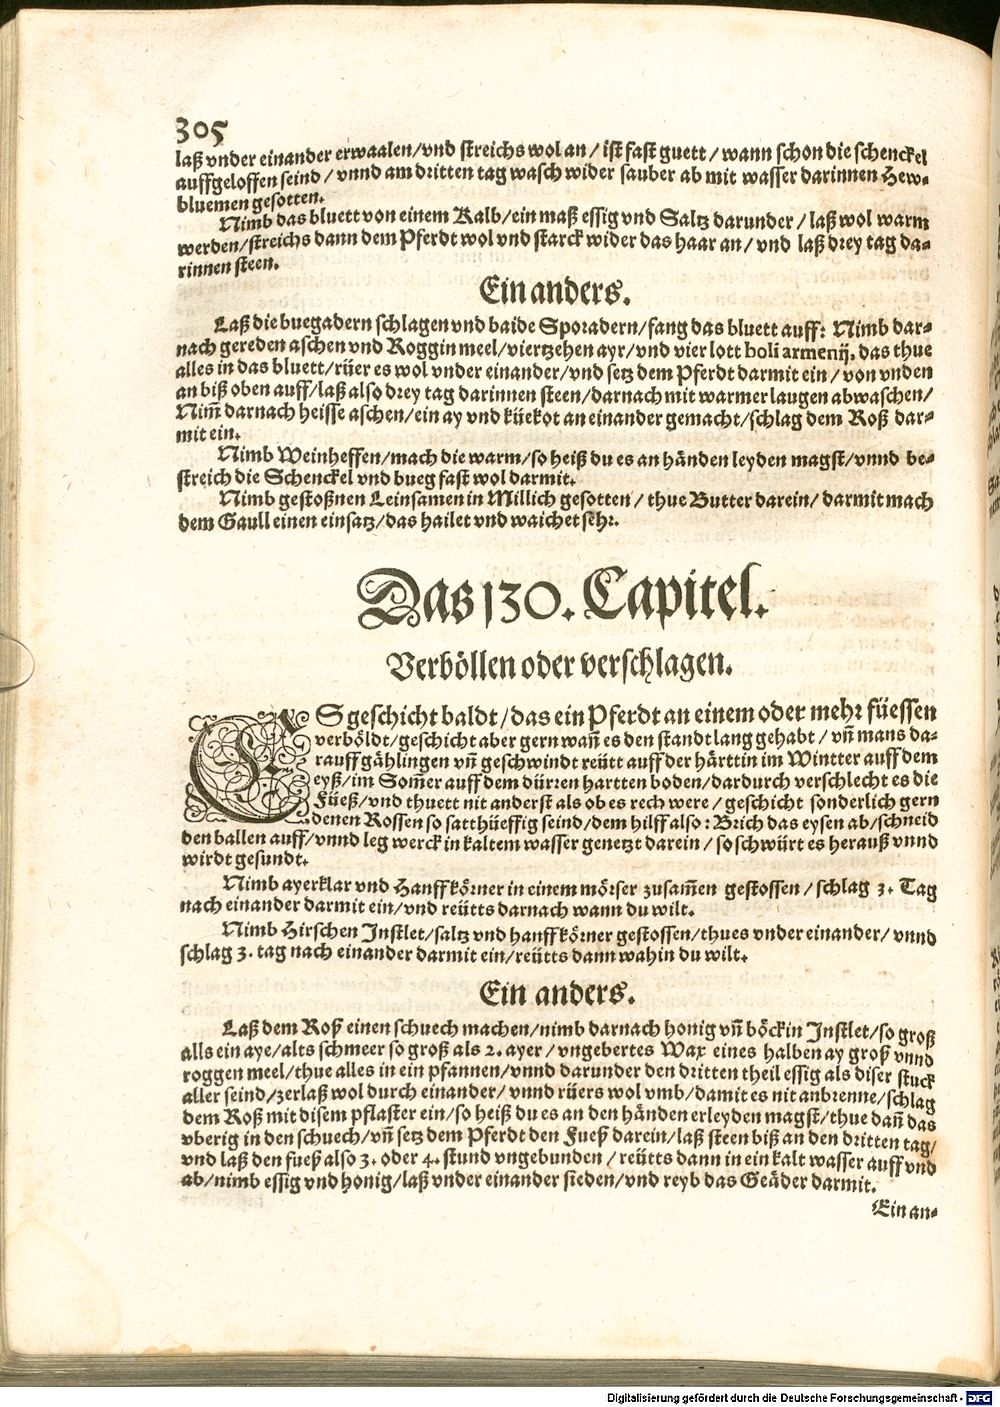 305
laß vnder einander erwaalen/vnd streichs wol an / ist fast guett / wann schon die schenckel
auffgeloffen seind / vnnd am dritten tag wasch wider sauber ab mit wasser darinnen Hew⸗
bluemen gesotten.
Nimb das bluett von einem Kalb/ein maß essig vnd Saltz darunder / laß wol warm
werden/streichs dann dem Pferdt wol vnd starck wider das haar an/ vnd laß drey tag da⸗
rinnen steen.
Ein anders.
Laß die buegadern schlagen vnd baide Sporadern/fang das bluett auff: Nimb dar⸗
nach gereden aschen vnd Roggin meel/viertzehen ayr/vnd vier lott boli armenij, das thue
alles in das bluett/rüer es wol vnder einander/vnd setz dem Pferdt darmit ein / von vnden
an biß oben auff/laß also drey tag darinnen steen/darnach mit warmer laugen abwaschen/
Nim̃ darnach heisse aschen/ein ay vnd küekot an einander gemacht/schlag dem Roß dar⸗
mit ein.
Nimb Weinheffen/mach die warm/so heiß du es an händen leyden magst/vnnd be⸗
streich die Schenckel vnd bueg fast wol darmit.
Nimb gestoßnen Leinsamen in Millich gesotten / thue Butter darein/ darmit mach
dem Gaull einen einsatz/das hailet vnd waichet sehr.
Das 130. Capitel.
Verböllen oder verschlagen.
ES geschicht baldt/das ein Pferdt an einem oder mehr füessen
verböldt/geschicht aber gern wañ es den standt lang gehabt / vñ mans da⸗
rauff gählingen vñ geschwindt reütt auff der härttin im Wintter auff dem
eyß/im Som̃er auff dem dürren hartten boden/dardurch verschlecht es die
Füeß/vnd thuett nit anderst als ob es rech were / geschicht sonderlich gern
denen Rossen so satthüeffig seind/dem hilff also: Brich das eysen ab/schneid
den ballen auff/vnnd leg werck in kaltem wasser genetzt darein / so schwürt es herauß vnnd
wirdt gesundt.
Nimb ayerklar vnd Hanffkörner in einem mörser zusam̃en gestossen / schlag 3. Tag
nach einander darmit ein/vnd reütts darnach wann du wilt.
Nimb Hirschen Jnstlet/saltz vnd hanffkörner gestossen/thues vnder einander/ vnnd
schlag 3. tag nach einander darmit ein/reütts dann wahin du wilt.
Ein anders.
Laß dem Roß einen schuech machen/nimb darnach honig vñ böckin Jnstlet/so groß
alls ein aye/alts schmeer so groß als 2. ayer / vngebertes Wax eines halben ay groß vnnd
roggen meel/thue alles in ein pfannen/vnnd darunder den dritten theil essig als diser stuck
aller seind/zerlaß wol durch einander/ vnnd rüers wol vmb/damit es nit anbrenne/schlag
dem Roß mit disem pflaster ein/so heiß du es an den händen erleyden magst/thue dañ das
vberig in den schuech/vñ setz dem Pferdt den Fueß darein/laß steen biß an den dritten tag/
vnd laß den fueß also 3. oder 4. stund vngebunden / reütts dann in ein kalt wasser auff vnd
ab/nimb essig vnd honig/laß vnder einander sieden/vnd reyb das Geäder darmit.
Ein an⸗
Digitalisierung gefördert durch die Deutsche Forschungsgemeinschaft - DFG